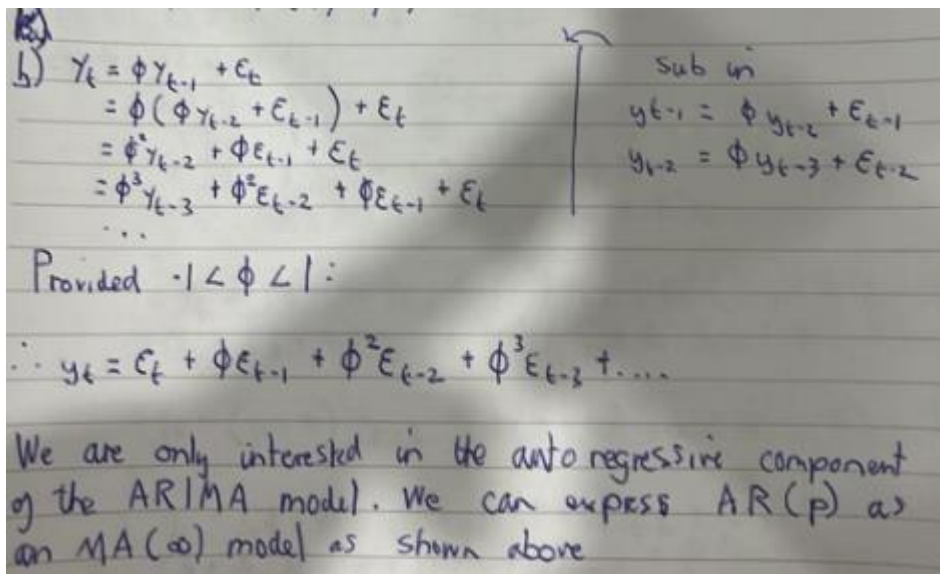 b) Y_t = ϕY_{t-1} + ε_t
= ϕ(ϕY_{t-2} + ε_{t-1}) + ε_t
= ϕ²Y_{t-2} + ϕε_{t-1} + ε_t
= ϕ³Y_{t-3} + ϕ²ε_{t-2} + ϕε_{t-1} + ε_t
...
sub in
y_{t-1} = ϕy_{t-2} + ε_{t-1}
y_{t-2} = ϕy_{t-3} + ε_{t-2}
Provided -1 < ϕ < 1:
∴ y_t = ε_t + ϕε_{t-1} + ϕ²ε_{t-2} + ϕ³ε_{t-3} + ....
We are only interested in the auto regressive component
of the ARIMA model. We can express AR(p) as
an MA(∞) model as shown above